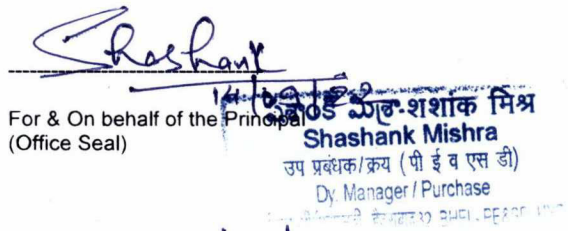 Shashank
For & On behalf of the Principal
(Office Seal)
శశాంక్ మిశ్రా-शशांक मिश्र
Shashank Mishra
उप प्रबंधक/क्रय (पी ई व एस डी)
Dy. Manager / Purchase